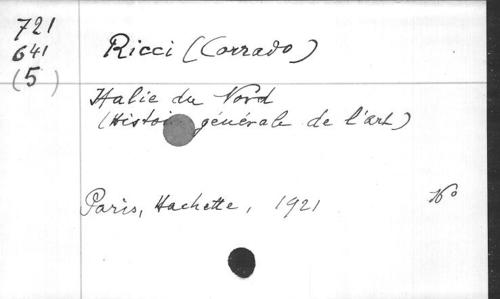 721
641
(5)
Ricci (Corrado)
Italie du Nord
(Histoire générale de l'art)
Paris, Hachette, 1921